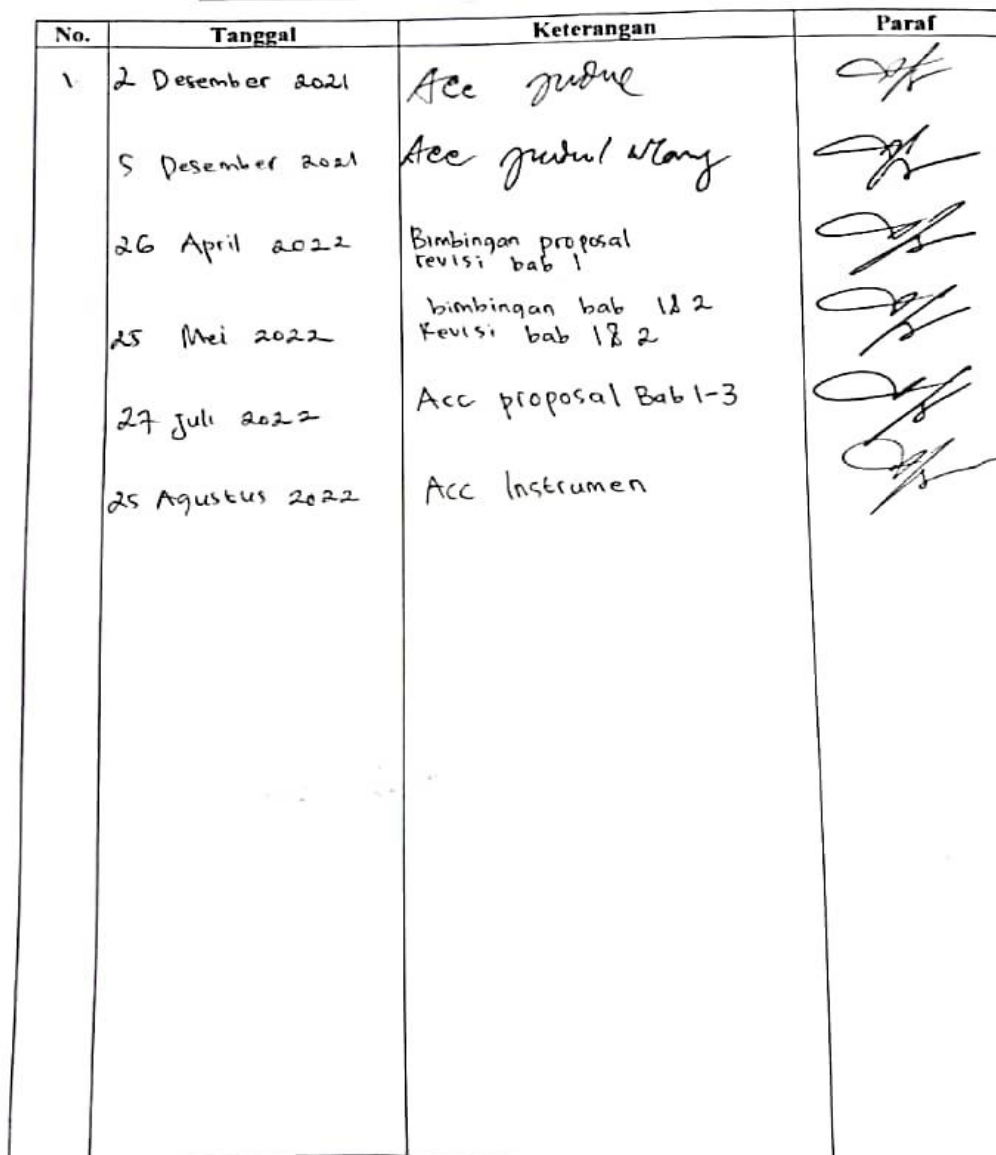 No. Tanggal Keterangan Paraf
1 2 Desember 2021 Acc judul
5 Desember 2021 Acc judul ulang
26 April 2022 Bimbingan proposal
revisi bab 1
bimbingan bab 1 & 2
25 Mei 2022 Revisi bab 1 & 2
27 Juli 2022 Acc proposal Bab 1-3
25 Agustus 2022 Acc Instrumen